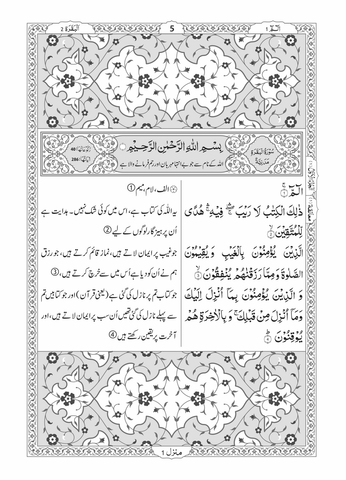 الٓمّٓ ١
5
اَلْبَقَرَة 2
سُوْرَةُ الْبَقَرَةِ
مَدَنِيَّةٌ
بِسْمِ اللهِ الرَّحْمٰنِ الرَّحِيْمِ
اللہ کے نام سے جو بے انتہا مہربان اور رحم فرمانے والا ہے
الٓمّٓ ۚ
ذٰلِكَ الْكِتٰبُ لَا رَيْبَ ۛ فِيْهِ ۛ هُدًى
لِّلْمُتَّقِيْنَ
الَّذِيْنَ يُؤْمِنُوْنَ بِالْغَيْبِ وَيُقِيْمُوْنَ
الصَّلٰوةَ وَمِمَّا رَزَقْنٰهُمْ يُنْفِقُوْنَ
وَ الَّذِيْنَ يُؤْمِنُوْنَ بِمَآ اُنْزِلَ اِلَيْكَ
وَمَآ اُنْزِلَ مِنْ قَبْلِكَ ۚ وَ بِالْاٰخِرَةِ هُمْ
يُوْقِنُوْنَ
الف، لام، میم ①
یہ اللہ کی کتاب ہے، اس میں کوئی شک نہیں۔ ہدایت ہے
اُن پرہیزگار لوگوں کے لیے ②
جو غیب پر ایمان لاتے ہیں، نماز قائم کرتے ہیں، جو رزق
ہم نے اُن کو دیا ہے اُس میں سے خرچ کرتے ہیں، ③
جو کتاب تم پر نازل کی گئی ہے (یعنی قرآن) اور جو کتابیں تم
سے پہلے نازل کی گئی تھیں اُن سب پر ایمان لاتے ہیں، اور
آخرت پر یقین رکھتے ہیں ④
منزل 1